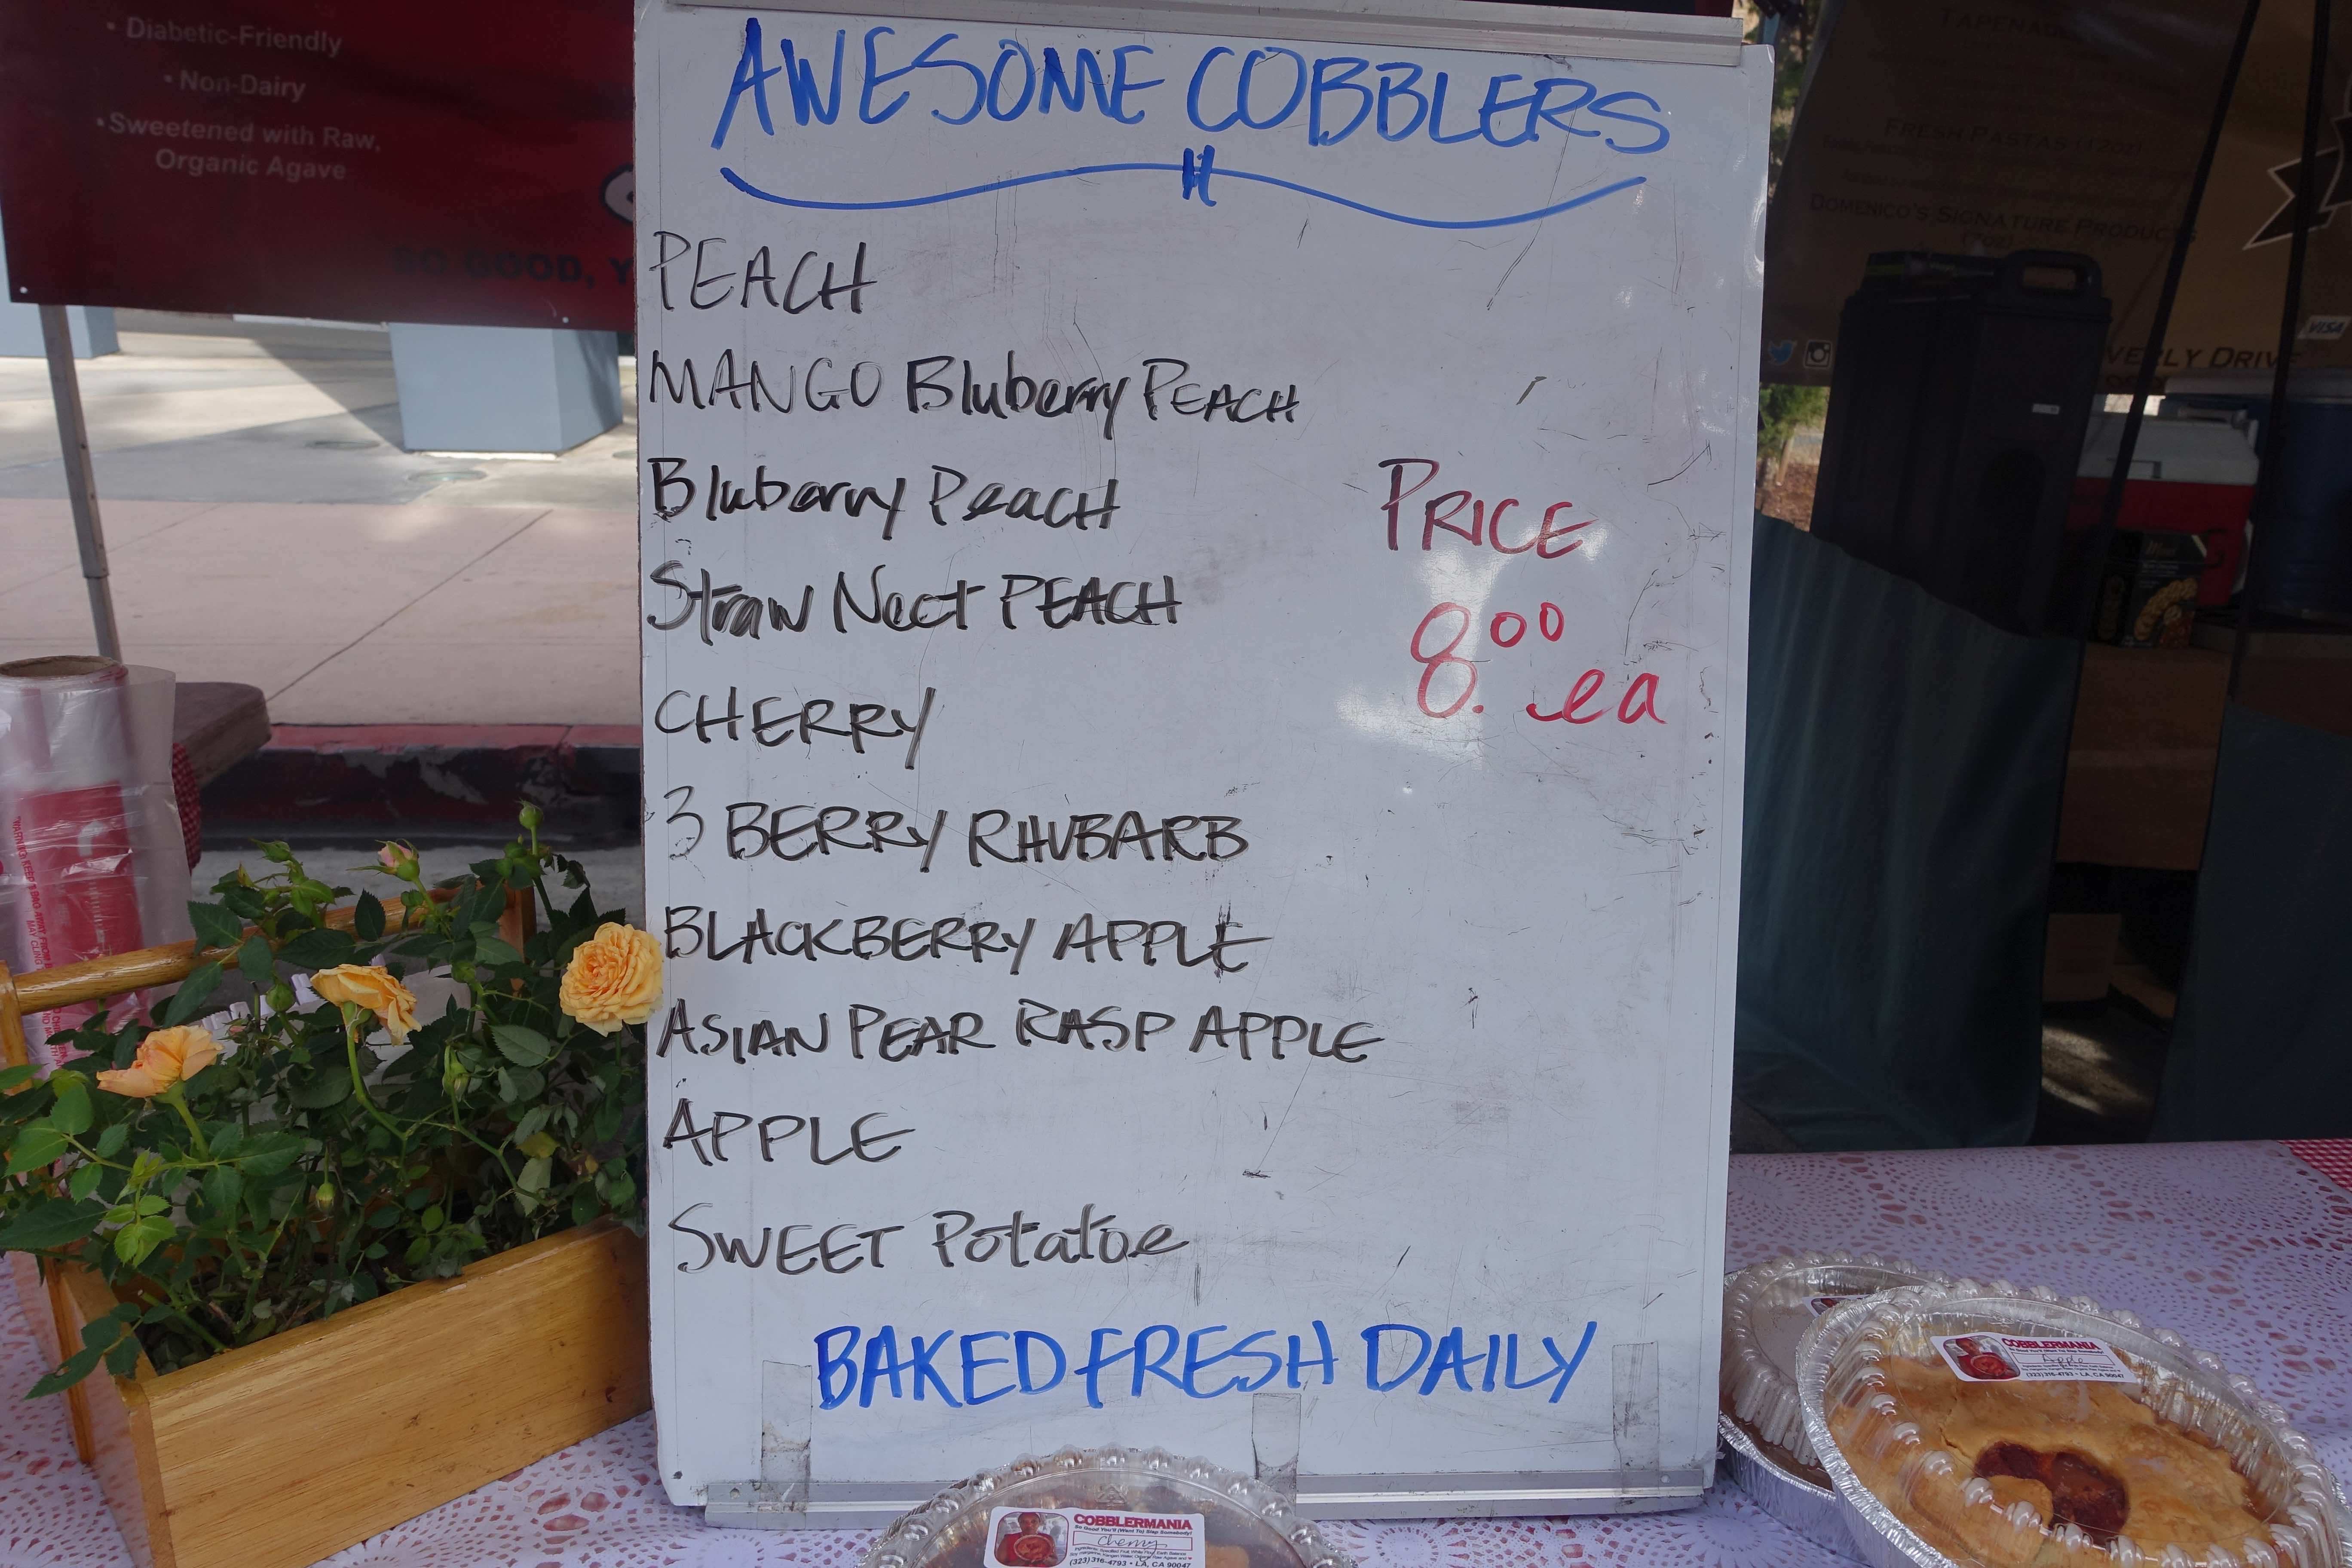 • Diabetic-Friendly
• Non-Dairy
• Sweetened with Raw,
Organic Agave
SO GOOD, Y
AWESOME COBBLERS
PEACH
MANGO Bluberry PEACH
Bluberry PeacH
Straw Nect PEACH
CHERRY
3 BERRY RHUBARB
BLACKBERRY APPLE
ASIAN PEAR RASP APPLE
APPLE
SWEET Potatoe
PRICE
8.00 ea
BAKED FRESH DAILY
TAPENADE
FRESH PASTAS (12oz)
DOMENICO'S SIGNATURE PRODUCTS
VISA
VERLY DRIVE
COBBLERMANIA
So Good You'll (Want To) Slap Somebody!
Cherry
(323) 316-4793 • LA, CA 90047
COBBLERMANIA
Apple
(323) 316-4793 • LA, CA 90047